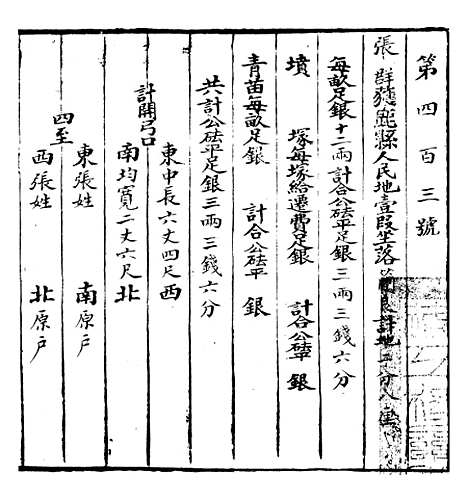 第四百三號
張群獲鹿縣人民地壹段坐落
計地二分八
每畝足銀十二兩計合公砝平足銀三兩三錢六分
墳塚每塚給遷費足銀 計合公砝平 銀
青苗每畝足銀 計合公砝平 銀
共計公砝平足銀三兩三錢六分
計開弓口
東中長六丈四尺西
南均寬二丈六尺北
四至
東張姓 南原戶
西張姓 北原戶